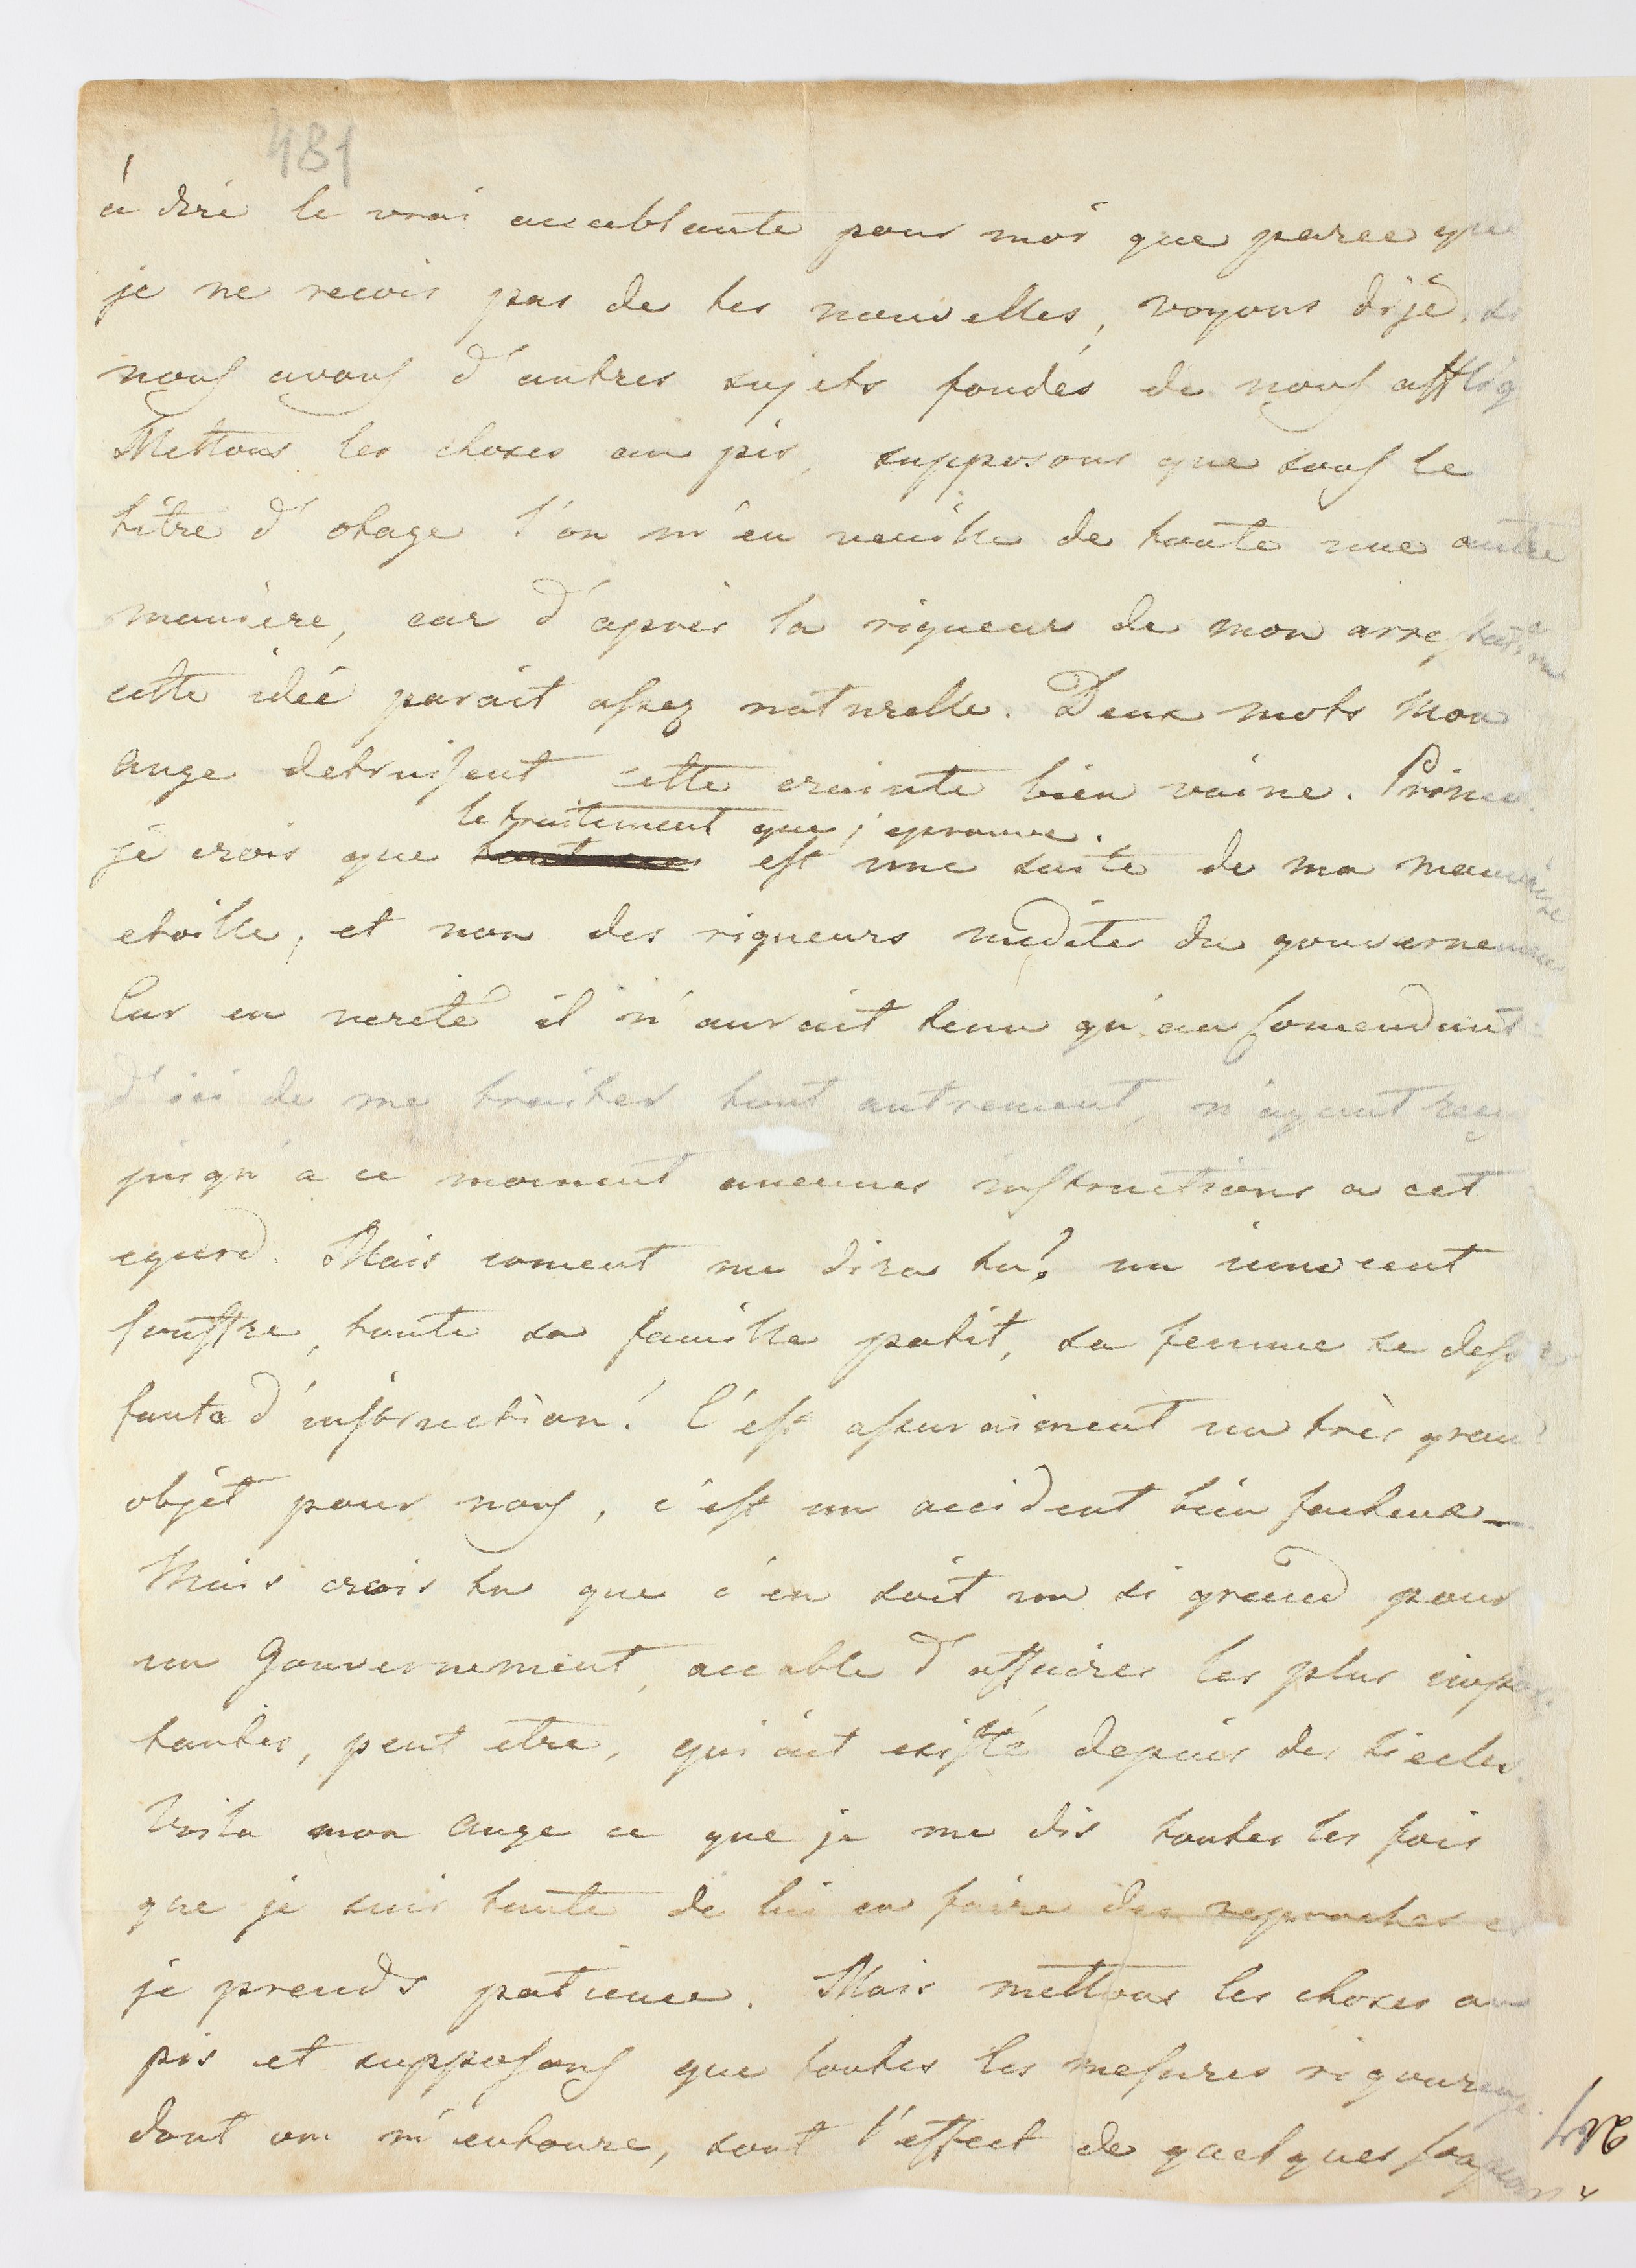 481
à dire le vrai accablante pour moi que parce que
je ne recois pas de tes nouvelles, voyons dèjè, si
nous avons d'autres sujets fondés de nous afflig
Mettons les choses au pis, supposons que sous le
tître d'otage l'on m'en veuille de toute une autre
manière, car d'après la rigueur de mon arrestation
cette idée parait assez naturelle. Deux mots mon
ange detruisent cette crainte bien vaine. Primo
le traitement que j'eprouve.
je crois que est une suite de ma mauvaise
etoille, et non des rigueurs medites du gouvernement
Car en verité il n'aurait tenu qu'au Comendant
d'ici de me traiter tout autrement, n'ayant reçu
jusqu'a ce moment aucunes instructions a cet
egard. Mais coment me dira tu? un innocent
souffre, toute sa famille patit, sa femme se
faute d'instruction! C'est assuraiment un très grand
objèt pour nous, c'est un accident bien facheux_
Mais crois tu que c'en soit un si grand pour
un Gouvernement, accable d'affaires les plus impor
tantes, peut etre, qui ait existé depuis des siecles.
Voila mon ange ce que je me dis toutes les fois
que je suis tenté de lui en faire des reproches et
je prends patience. Mais mettons les choses au
pis et supposons que toutes les mesures rigoureuse
dont on m'entoure, sont l'effect de quelques soupçons